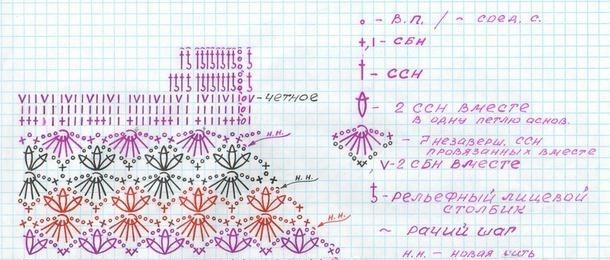 о - В.П. / ⌒ соед. с.
+, ı - СБН
† - ССН
- 2 ССН вместе
в одну петлю основ.
- 7 незаверш. ССН
провязанных вместе
v - 2 СБН вместе
- рельефный лицевой
столбик
~ рачий шаг
н.н. - новая нить
v - четное
н.н.
н.н.
н.н.